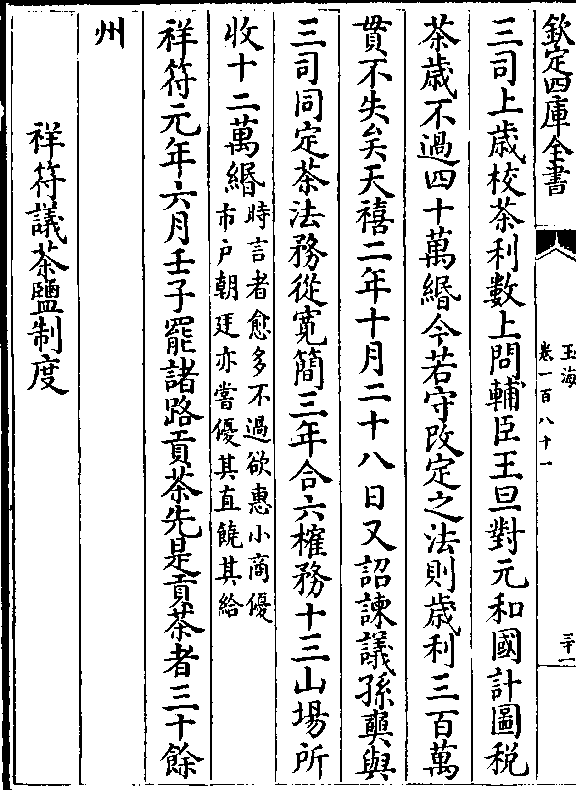 欽定四庫全書
玉海
卷一百八十一
三十一
三司上歳校茶利數上問輔臣王旦對元和國計圖税
茶歳不過四十萬緡今若守改定之法則歳利三百萬
貫不失矣天禧二年十月二十八日又詔諫議孫奭與
三司同定茶法務從寛簡三年合六榷務十三山場所
收十二萬緡時言者愈多不過欲惠小商優
市户朝廷亦嘗優其直饒其給
祥符元年六月壬子罷諸路貢茶先是貢茶者三十餘
州
祥符議茶鹽制度